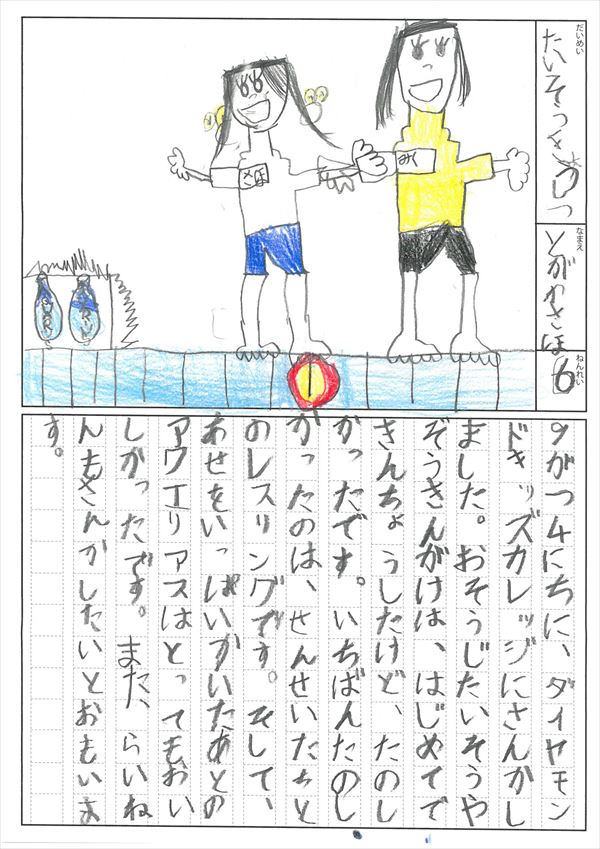 だいめい
たいそうきょうしつ
なまえ
とがわさほ
ねんれい
6
さほ
みく
9がつ4にちに、ダイヤモン
ドキッズカレッジにさんかし
ました。おそうじたいそうや
ぞうきんがけは、はじめてで
きんちょうしたけど、たのし
かったです。いちばんたのし
かったのは、せんせいたちと
のレスリングです。そして、
あせをいっぱいかいたあとの
アクエリアスはとってもおい
しかったです。また、らいね
んもさんかしたいとおもいま
す。